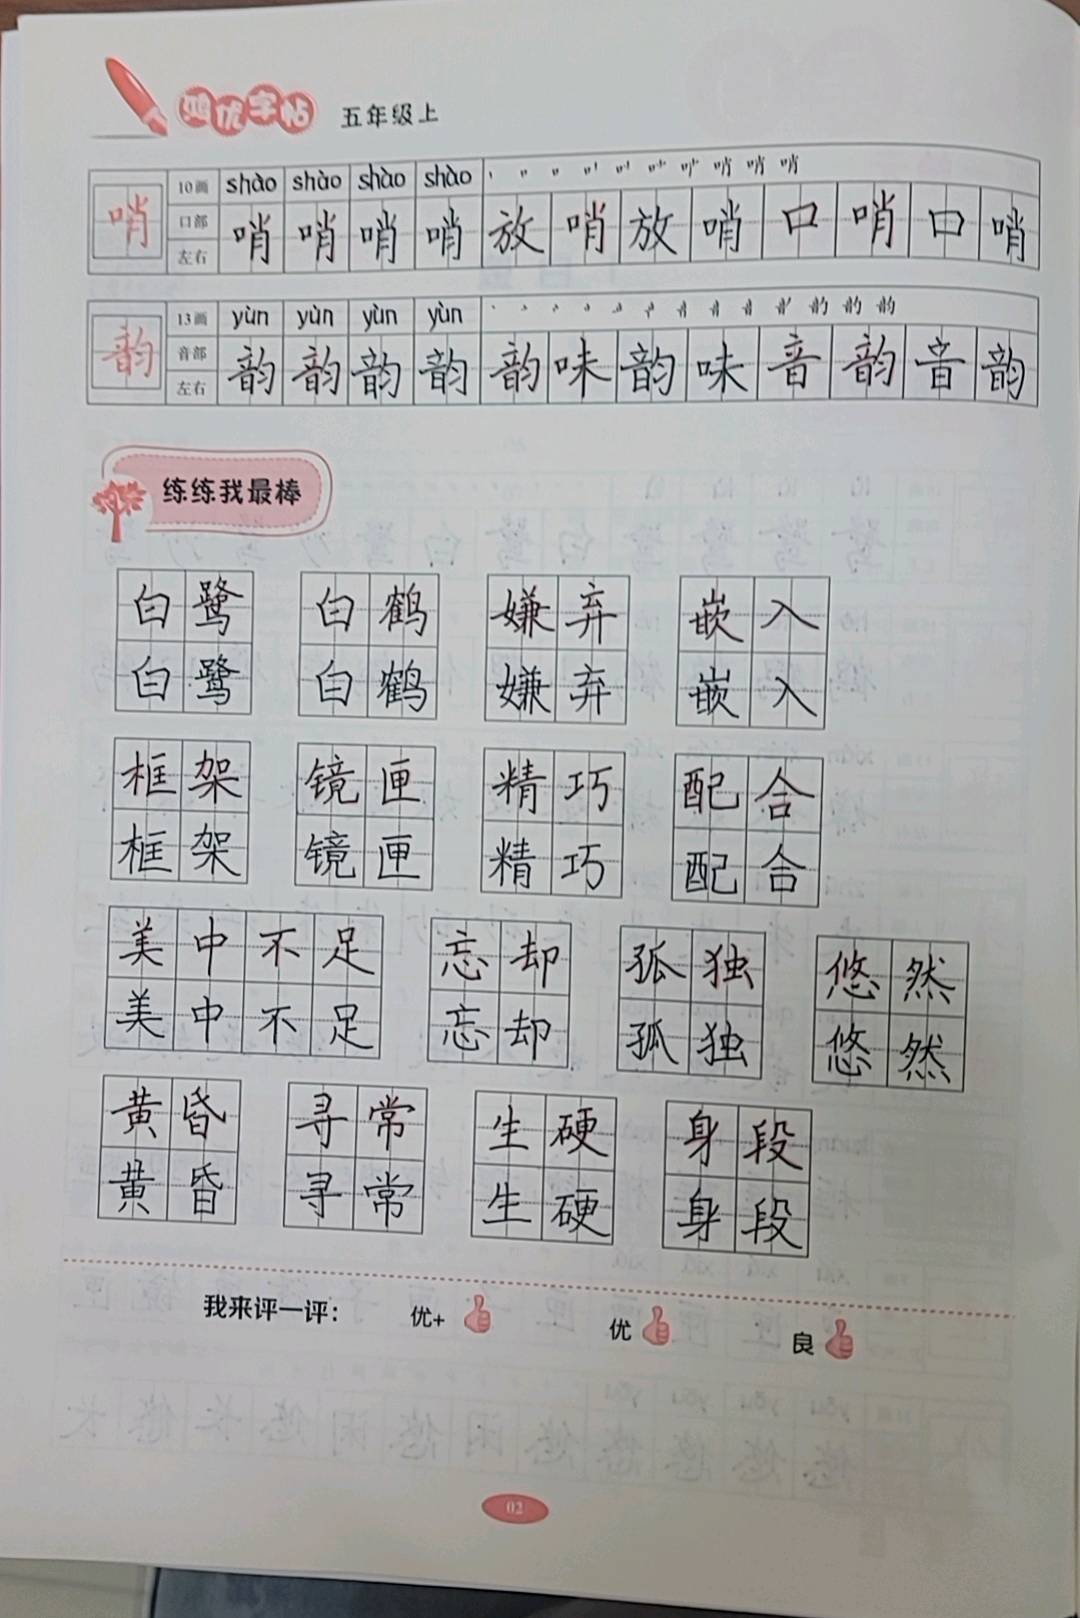 鸿优字帖 五年级上
10画 shào shào shào shào
口部
左右
哨 哨 哨 哨 哨 放 哨 放 哨 口 哨 口 哨
13画 yùn yùn yùn yùn
音部
左右
韵 韵 韵 韵 韵 韵 味 韵 味 音 韵 音 韵
练练我最棒
白鹭 白鹤 嫌弃 嵌入
白鹭 白鹤 嫌弃 嵌入
框架 镜匣 精巧 配合
框架 镜匣 精巧 配合
美中不足 忘却 孤独 悠然
美中不足 忘却 孤独 悠然
黄昏 寻常 生硬 身段
黄昏 寻常 生硬 身段
我来评一评: 优+ 优 良
02